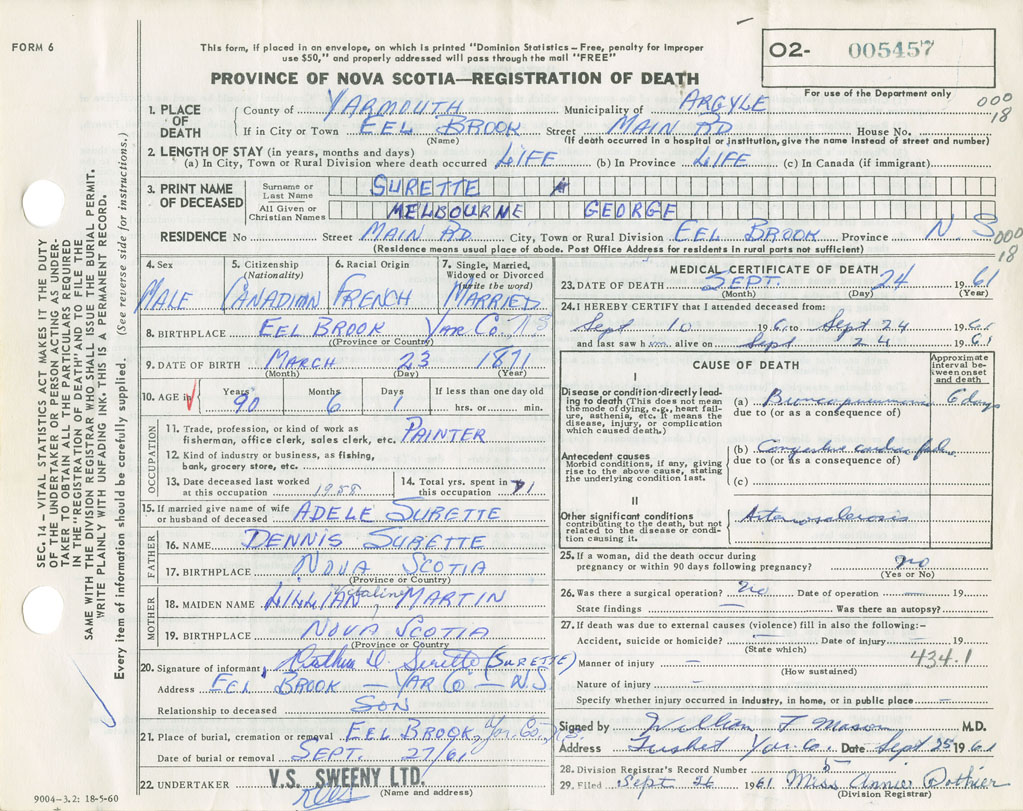 FORM 6
This form, if placed in an envelope, on which is printed "Dominion Statistics – Free, penalty for improper
use $50," and properly addressed will pass through the mail "FREE"
O2- 005457
For use of the Department only
PROVINCE OF NOVA SCOTIA—REGISTRATION OF DEATH
000
18
1. PLACE OF DEATH
County of YARMOUTH Municipality of ARGYLE
If in City or Town EEL BROOK Street MAIN RD House No.
(Name) (If death occurred in a hospital or institution, give the name instead of street and number)
2. LENGTH OF STAY (in years, months and days)
(a) In City, Town or Rural Division where death occurred LIFE (b) In Province LIFE (c) In Canada (if immigrant)
3. PRINT NAME OF DECEASED
Surname or Last Name SURETTE
All Given or Christian Names MELBOURNE GEORGE
RESIDENCE No Street MAIN RD City, Town or Rural Division EEL BROOK Province N.S
(Residence means usual place of abode. Post Office Address for residents in rural parts not sufficient)
000
18
4. Sex MALE
5. Citizenship (Nationality) CANADIAN
6. Racial Origin FRENCH
7. Single, Married, Widowed or Divorced (write the word) MARRIED
8. BIRTHPLACE EEL BROOK YAR CO. NS
(Province or Country)
9. DATE OF BIRTH MARCH 23 1871
(Month) (Day) (Year)
10. AGE in Years 90 Months 6 Days 1 If less than one day old hrs. or min.
OCCUPATION
11. Trade, profession, or kind of work as
fisherman, office clerk, sales clerk, etc. PAINTER
12. Kind of industry or business, as fishing,
bank, grocery store, etc.
13. Date deceased last worked
at this occupation 1958
14. Total yrs. spent in
this occupation 71
15. If married give name of wife
or husband of deceased ADELE SURETTE
FATHER
16. NAME DENNIS SURETTE
17. BIRTHPLACE NOVA SCOTIA
(Province or Country)
MOTHER
18. MAIDEN NAME LILLIAN MARTIN
19. BIRTHPLACE NOVA SCOTIA
(Province or Country
20. Signature of informant Surette (SURETTE)
Address EEL BROOK — YAR CO — N.S.
Relationship to deceased SON
21. Place of burial, cremation or removal EEL BROOK, Yar. Co. N.S.
Date of burial or removal SEPT. 27/61
22. UNDERTAKER V.S. SWEENY LTD.
(Name and address)
9004-3.2: 18-5-60
MEDICAL CERTIFICATE OF DEATH
23. DATE OF DEATH SEPT. 24 1961
(Month) (Day) (Year)
24. I HEREBY CERTIFY that I attended deceased from:
Sept 10 1961 to Sept 24 1961
and last saw him alive on Sept 24 1961
CAUSE OF DEATH
Approximate interval between onset and death
I
Disease or condition directly leading to death (This does not mean the mode of dying, e.g., heart failure, asthenia, etc. It means the disease, injury, or complication which caused death.)
(a) Bronco pneumonia 6 days
due to (or as a consequence of)
Antecedent causes
Morbid conditions, if any, giving rise to the above cause, stating the underlying condition last.
(b) Congestive cardiac failure
due to (or as a consequence of)
(c)
II
Other significant conditions
contributing to the death, but not related to the disease or condition causing it.
Arteriosclerosis
25. If a woman, did the death occur during
pregnancy or within 90 days following pregnancy? no
(Yes or No)
26. Was there a surgical operation? no Date of operation — 19
State findings — Was there an autopsy?
27. If death was due to external causes (violence) fill in also the following:-
Accident, suicide or homicide? — Date of injury — 19
(State which)
434.1
Manner of injury —
(How sustained)
Nature of injury —
Specify whether injury occurred in industry, in home, or in public place —
Signed by William F Mason M.D.
Address Tusket Yar. Co. Date Sept 25 1961
28. Division Registrar's Record Number 5
29. Filed Sept 26 1961 Miss Annie Pothier
(Division Registrar)
SEC. 14 – VITAL STATISTICS ACT MAKES IT THE DUTY
OF THE UNDERTAKER OR PERSON ACTING AS UNDER-
TAKER TO OBTAIN ALL THE PARTICULARS REQUIRED
IN THE "REGISTRATION OF DEATH" AND TO FILE THE
SAME WITH THE DIVISION REGISTRAR WHO SHALL ISSUE THE BURIAL PERMIT.
WRITE PLAINLY WITH UNFADING INK. THIS IS A PERMANENT RECORD.
Every item of information should be carefully supplied. (See reverse side for instructions.)